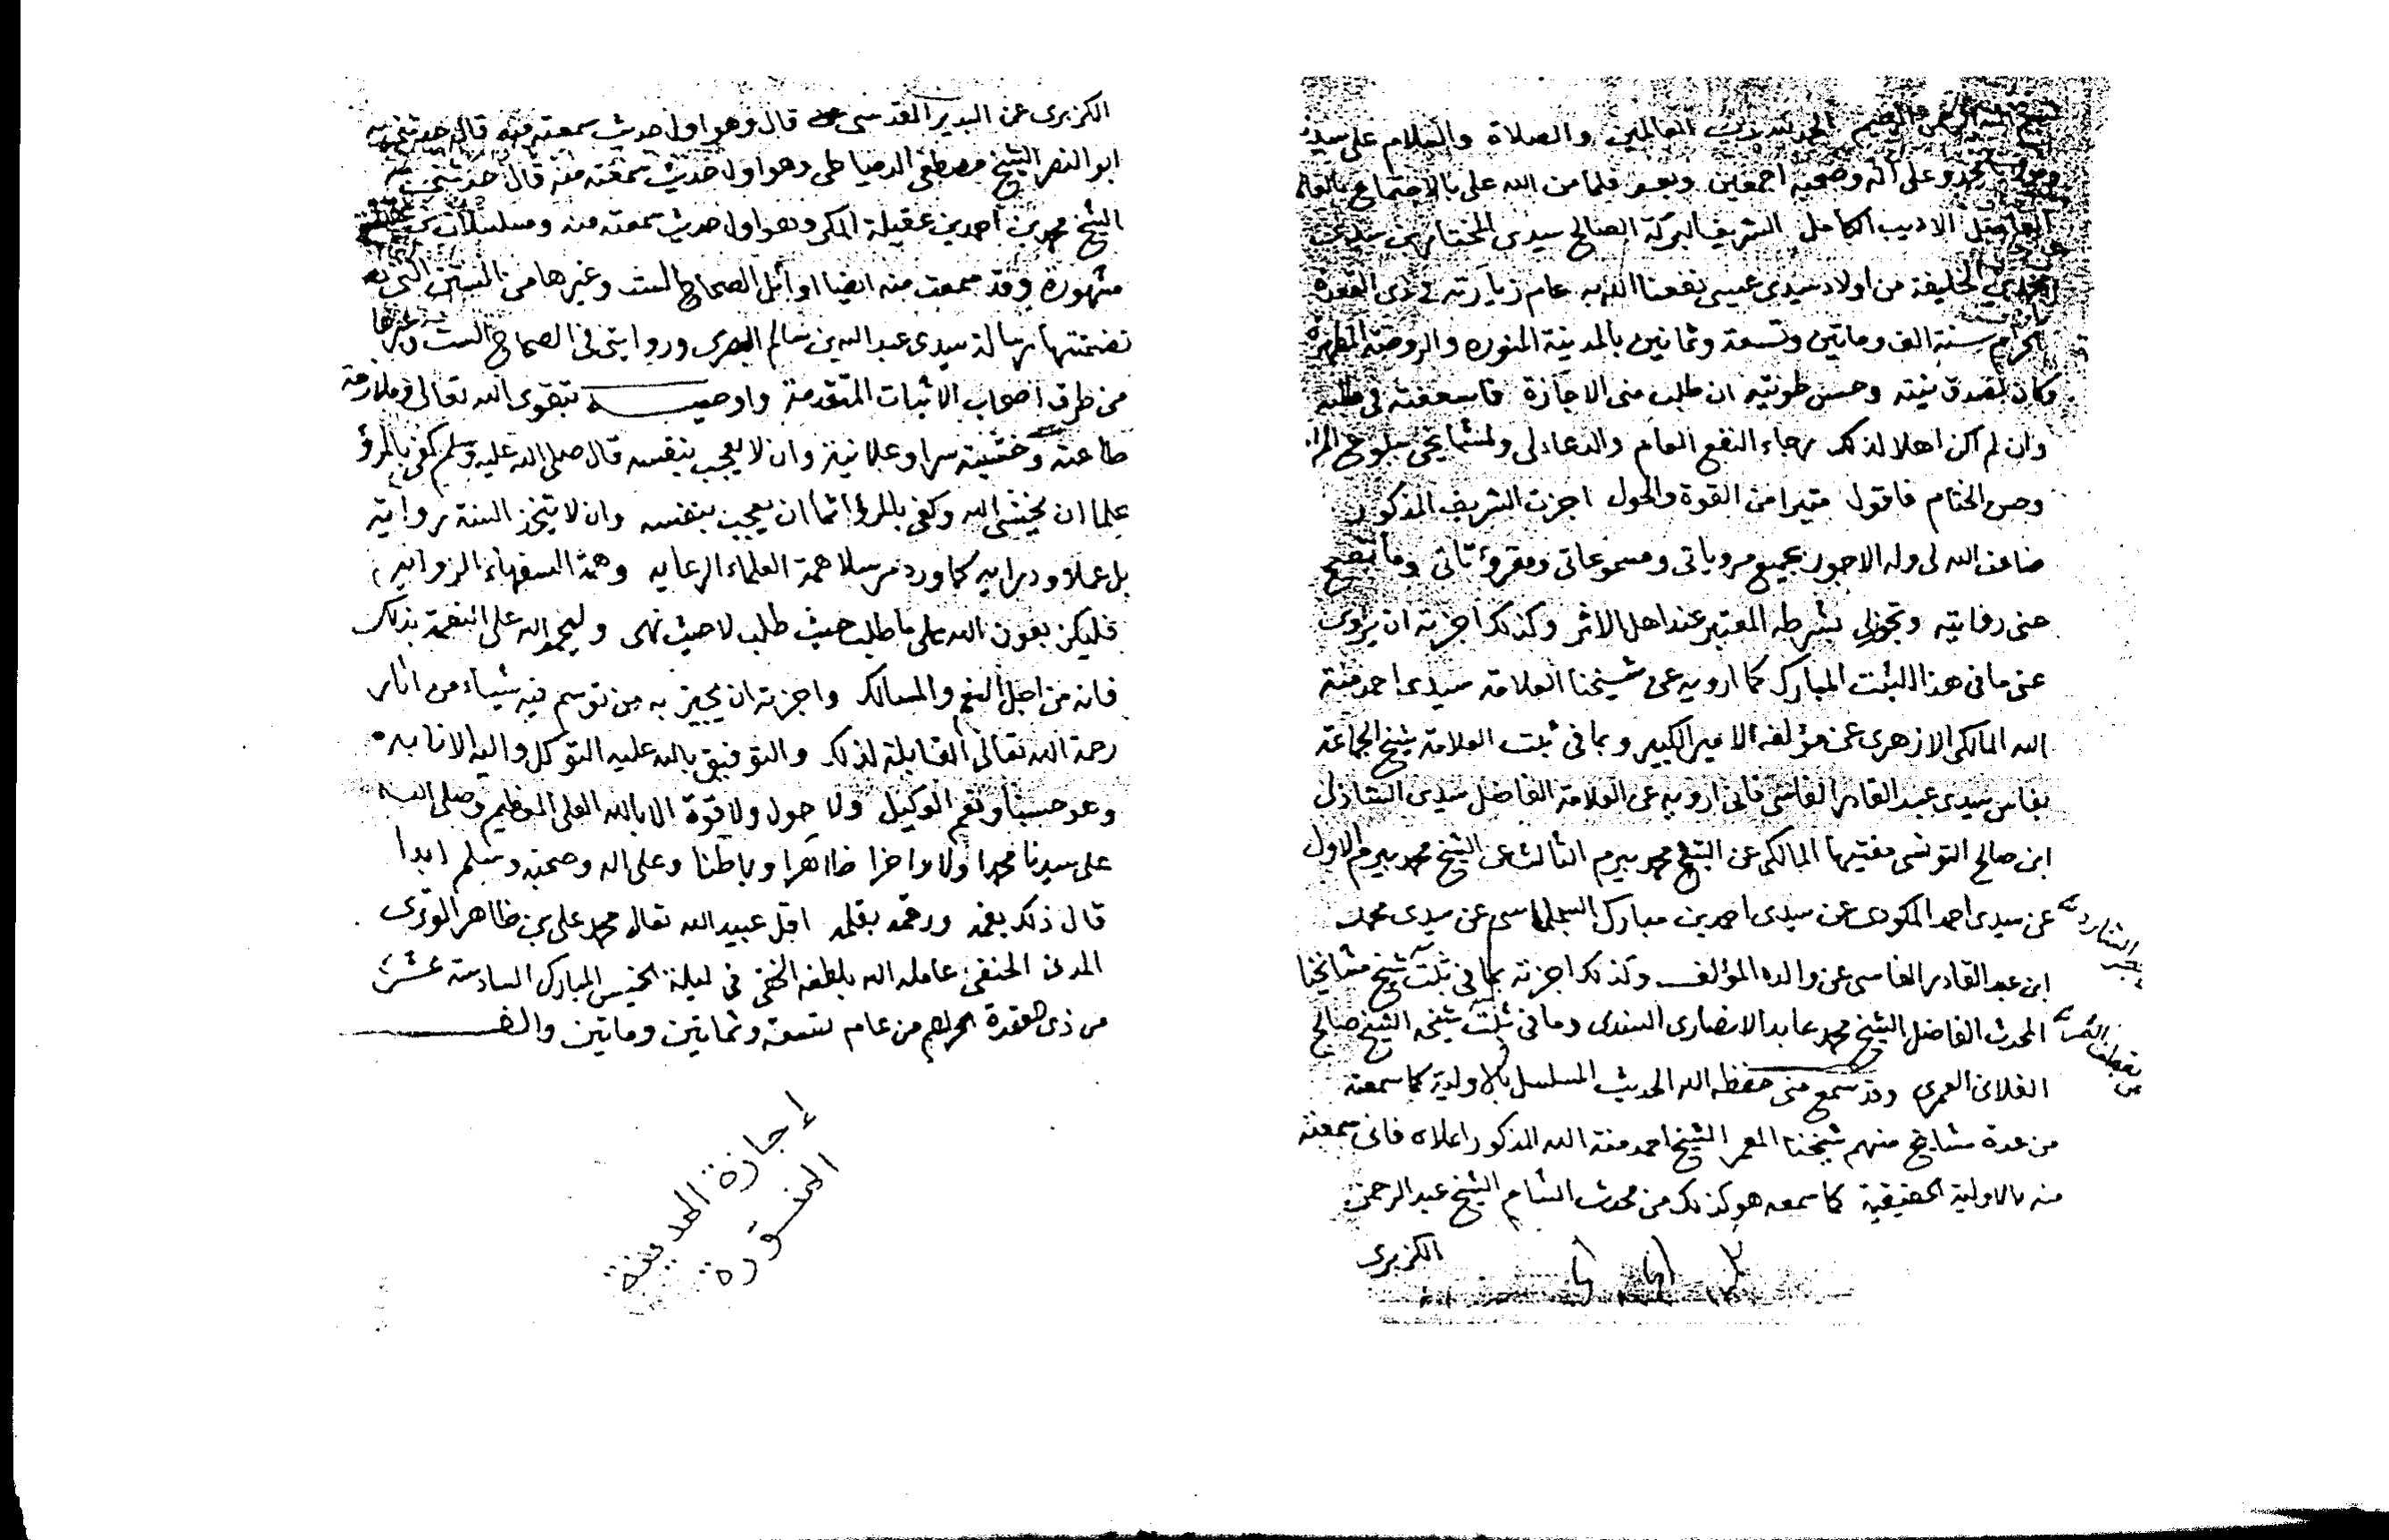 بسم الله الرحمن الرحيم الحمد لله رب العالمين والصلاة والسلام على سيدنا
ومولانا محمد وعلى آله وصحبه اجمعين وبعد فلما من الله علي بالاجتماع بالعالم
الفاضل الاديب الكامل الشريف البركة الصالح سيدي المختار بن سيدي
الخليفة من اولاد سيدي عيسى نفعنا الله به عام زيارته في ذي القعدة
الحرام سنة الف وماتين وتسعة وثمانين بالمدينة المنوره والروضة المطهرة
وكان لصدق نيته وحسن طويته ان طلب منى الاجازة فاسعفته في طلبه
وان لم اكن اهلا لذلك رجاء النفع العام والدعاء لى ولمشايخي ببلوغ المرام
وحسن الختام فاقول متبرا من القوة والحول اجزت الشريف المذكور
ضاعف الله لى وله الاجور بجميع مروياتى ومسموعاتى ومقروءتاتى وما تصح
عنى روايته وتجوز لي بشرطه المعتبر عند اهل الاثر وكذلك اجزته ان يروى
عنى ما فى هذا الثبت المبارك كما ارويه عن شيخنا العلامة سيدى احمد منة
الله المالكى الازهرى عن مؤلفه الامير الكبير وبما فى ثبت العلامة شيخ الجماعة
بفاس سيدى عبد القادر الفاسى فانى ارويه عن العلامة الفاضل سيدى الشاذلى
ابن صالح التونسى مفتيها المالكى عن الشيخ محمد بيرم الثالث عن الشيخ محمد بيرم الاول
عن سيدى احمد المكودى عن سيدى احمد بن مبارك السجلماسى عن سيدى محمد
ابن عبد القادر الفاسى عن والده المؤلف وكذلك اجزته بما فى ثبت شيخ مشائخنا
المحدث الفاضل الشيخ محمد عابد الانصارى السندى وما فى ثبت شيخه الشيخ صالح
الفلانى العمرى وقد سمع منى حفظه الله الحديث المسلسل بالاولية كما سمعته
من عدة مشايخ منهم شيخنا المعمر الشيخ احمد منة الله المذكور اعلاه فانى سمعته
منه بالاولية الحقيقية كما سمعه هو كذلك من محدث الشام الشيخ عبد الرحمن
الكزبرى
الكزبرى عن البدير المقدسى قال وهو اول حديث سمعته منه قال حدثنى به
ابو النصر الشيخ مصطفى الدمياطى وهو اول حديث سمعته منه قال حدثنى به
الشيخ محمد بن احمد بن عقيلة المكى وهو اول حديث سمعته منه ومسلسلات
مشهورة وقد سمعت منه ايضا اوائل الصحاح الست وغيرها من السنن التى
تضمنتها رسالة سيدى عبد الله بن سالم البصرى وروايتى فى الصحاح الست وغيرها
من طرق اصحاب الاثبات المتقدمة واوصيه بتقوى الله تعالى وملازمة
طاعته وخشيته سرا وعلانية وان لا يعجب بنفسه قال صلى الله عليه وسلم كفى بالمرؤ
علما ان يخشى الله وكفى بالمرؤ اثما ان يعجب بنفسه وان لا يتخذ السنة رواية
بل عملا ودراية كما ورد مرسلا همة العلماء الرعايه وهمة السفهاء الروايه
فليكن بعون الله على ما طلب حيث طلب لا حيث نهى وليحمد الله على النعمة بذلك
فانه من اجل النعم والمسالك واجزته ان يجيز به من توسم فيه شيئا من اثار
رحمة الله تعالى القابلة لذلك والتوفيق بالله عليه التوكل واليه الانابه
وهو حسبنا ونعم الوكيل ولا حول ولا قوة الا بالله العلى العظيم وصلى الله
على سيدنا محمد اولا واخرا ظاهرا وباطنا وعلى اله وصحبه وسلم ابدا
قال ذلك بفمه ورقمه بقلمه اقل عبيد الله تعالى محمد على بن ظاهر الوترى
المدنى الحنفى عامله الله بلطفه الخفى فى ليلة الخميس المبارك السادسة عشر
من ذى القعدة الحرام من عام تسعة وثمانين وماتين والف
إجازة المدينة
المنورة